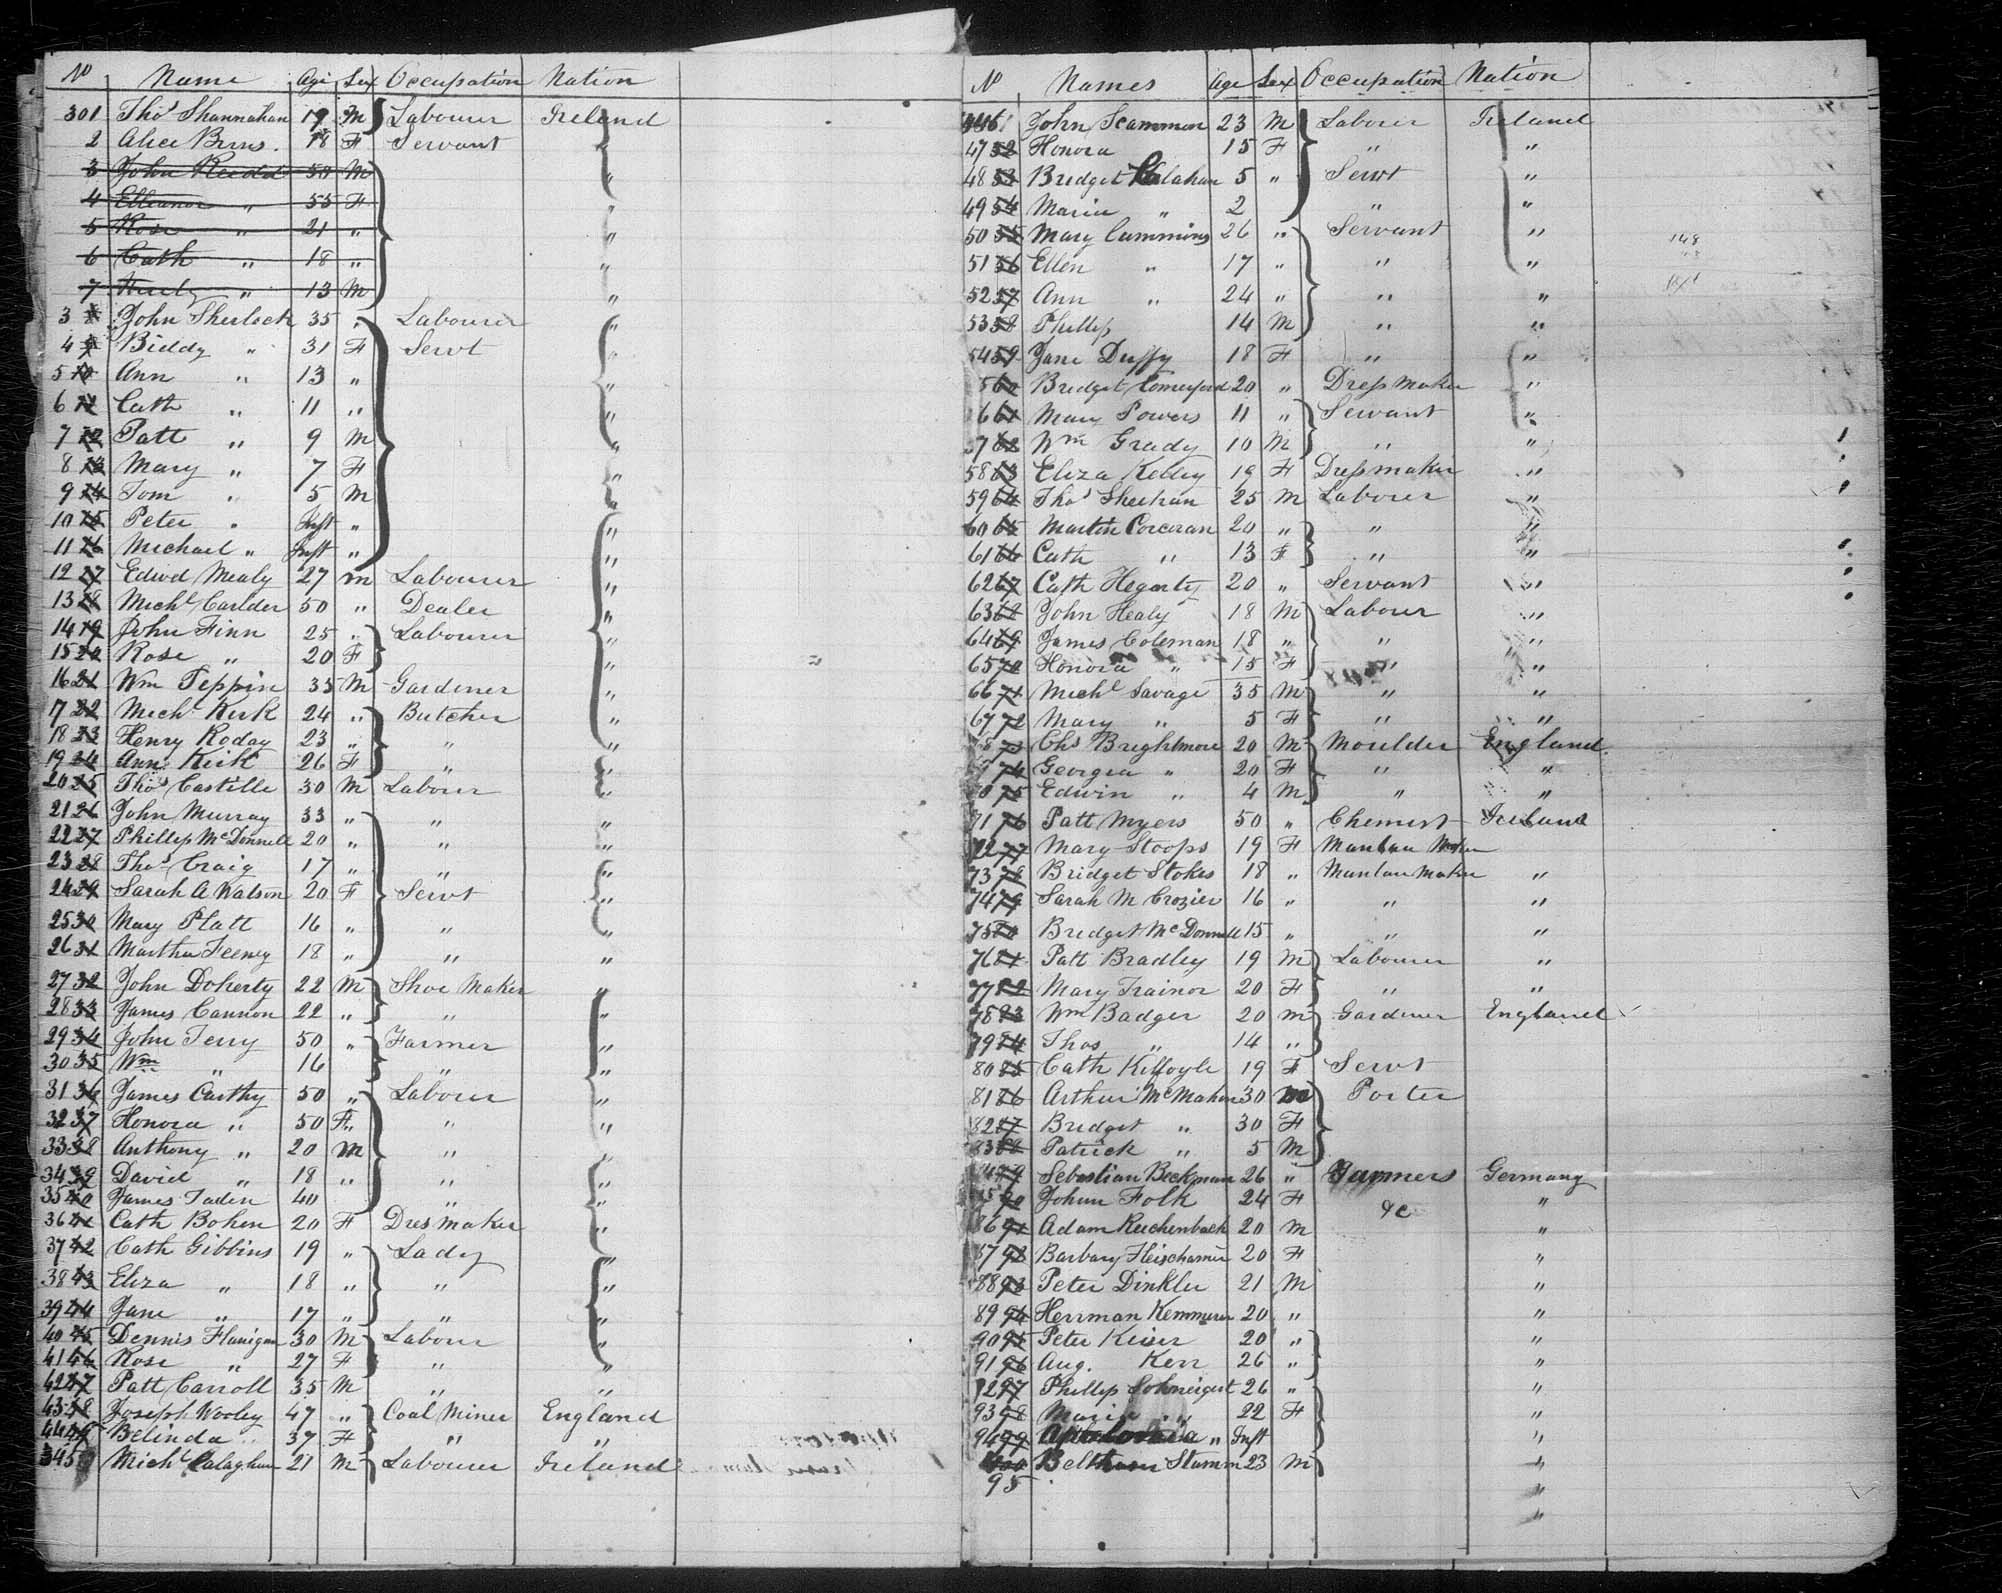 No Name Age Sex Occupation Nation
301 Thos Shannahan 19 M Labourer Ireland
2 Alice Burns. 18 F Servant
3 John 50 M
4 Elleanor " 55 F
5 Rose " 21 "
6 Cath " 18 "
7 " 13 M
3 8 John Sherlock 35 " Labourer "
4 9 Biddy " 31 F Servt "
5 10 Ann " 13 "
6 11 Cath " 11 " "
7 12 Patt " 9 M "
8 13 Mary " 7 F
9 14 Tom " 5 M
10 15 Peter " Inft "
11 16 Michael " Inft " "
12 17 Edwd Mealy 27 M Labourer "
13 18 Michl Carlder 50 " Dealer "
14 19 John Finn 25 " Labourer "
15 20 Rose " 20 F "
16 21 Wm Teppin 35 M Gardener "
17 22 Michl Kirk 24 " Butcher "
18 23 Henry Roday 23 " " "
19 24 Ann Kirk 26 F " "
20 25 Thos Castille 30 M Labourer "
21 26 John Murray 33 " " "
22 27 Phillip McDonnell 20 " " "
23 28 Thos Craig 17 " " "
24 29 Sarah A Watson 20 F Servt "
25 30 Mary Platt 16 " " "
26 31 Martha Feeney 18 " " "
27 32 John Doherty 22 M Shoe Maker "
28 33 James Cannon 22 " " "
29 34 John Terry 50 " Farmer "
30 35 Wm " 16 " "
31 36 James Carthy 50 " Labourer "
32 37 Honora " 50 F " "
33 38 Anthony " 20 M " "
34 39 David " 18 " " "
35 40 James Taden 40 " "
36 41 Cath Bohen 20 F Dresmaker "
37 42 Cath Gibbins 19 " Lady "
38 43 Eliza " 18 " " "
39 44 Jane " 17 " " "
40 45 Dennis Flanigan 30 M Labourer "
41 46 Rose " 27 F " "
42 47 Patt Carroll 35 M " "
43 48 Joseph Wooley 47 " Coal Miner England
44 49 Belinda " 37 F " "
345 Michl Calaghan 21 M Labourer Ireland
No Names Age Sex Occupation Nation
46 John Scammon 23 M Laborer Ireland
47 52 Honora 15 F " "
48 53 Bridget Calahan 5 " Servt "
49 54 Maria " 2 " "
50 55 Mary Cummins 26 " Servant "
51 56 Ellen " 17 " " "
52 57 Ann " 24 " " "
53 58 Phillip 14 M " "
54 59 Jane Duffy 18 F " "
5 60 Bridget Comerford 20 " Dressmaker "
6 61 Mary Powers 11 " Servant "
57 62 Wm Grady 10 M " "
58 63 Eliza Kelley 19 F Dressmaker "
59 64 Thos Sheehan 25 M Laborer "
60 65 Martin Corcoran 20 " " "
61 66 Cath " 13 F " "
62 67 Cath Hegarty 20 " Servant "
63 68 John Healy 18 M Labourer "
64 69 James Coleman 18 " " "
65 70 Honora " 15 F " "
66 71 Michl Savage 35 M " "
67 72 Mary " 5 F " "
8 73 Chs Brightmore 20 M Moulder England
74 Georgia " 20 F " "
70 75 Edwin " 4 M " "
71 76 Patt Myers 50 " Chemist Ireland
72 77 Mary Stoops 19 F Mantau Maker
73 78 Bridget Stokes 18 " Mantau Maker "
74 79 Sarah M Crozier 16 " " "
75 80 Bridget McDonnell 15 " " "
76 81 Patt Bradley 19 M Labourer "
77 82 Mary Trainor 20 F " "
78 83 Wm Badger 20 M Gardener England
79 84 Thos " 14 "
80 85 Cath Kilfoyle 19 F Servt
81 86 Arthur McMahon 30 M Porter
82 87 Bridget " 30 F
83 88 Patrick " 5 M
84 89 Sebastian Beckman 26 " Farmers Germany
85 90 Johun Folk 24 F &c "
86 91 Adam Reichenbach 20 M "
87 92 Barbary Fleischamer 20 F "
88 93 Peter Dinkler 21 M "
89 94 Herrman Kemmerer 20 " "
90 95 Peter Keier 20 " "
91 96 Aug. Kerr 26 " "
92 97 Phillip 26 " "
93 98 Maria " 22 F "
94 99 " Inft "
400 Stamm 23 M "
95 "
"